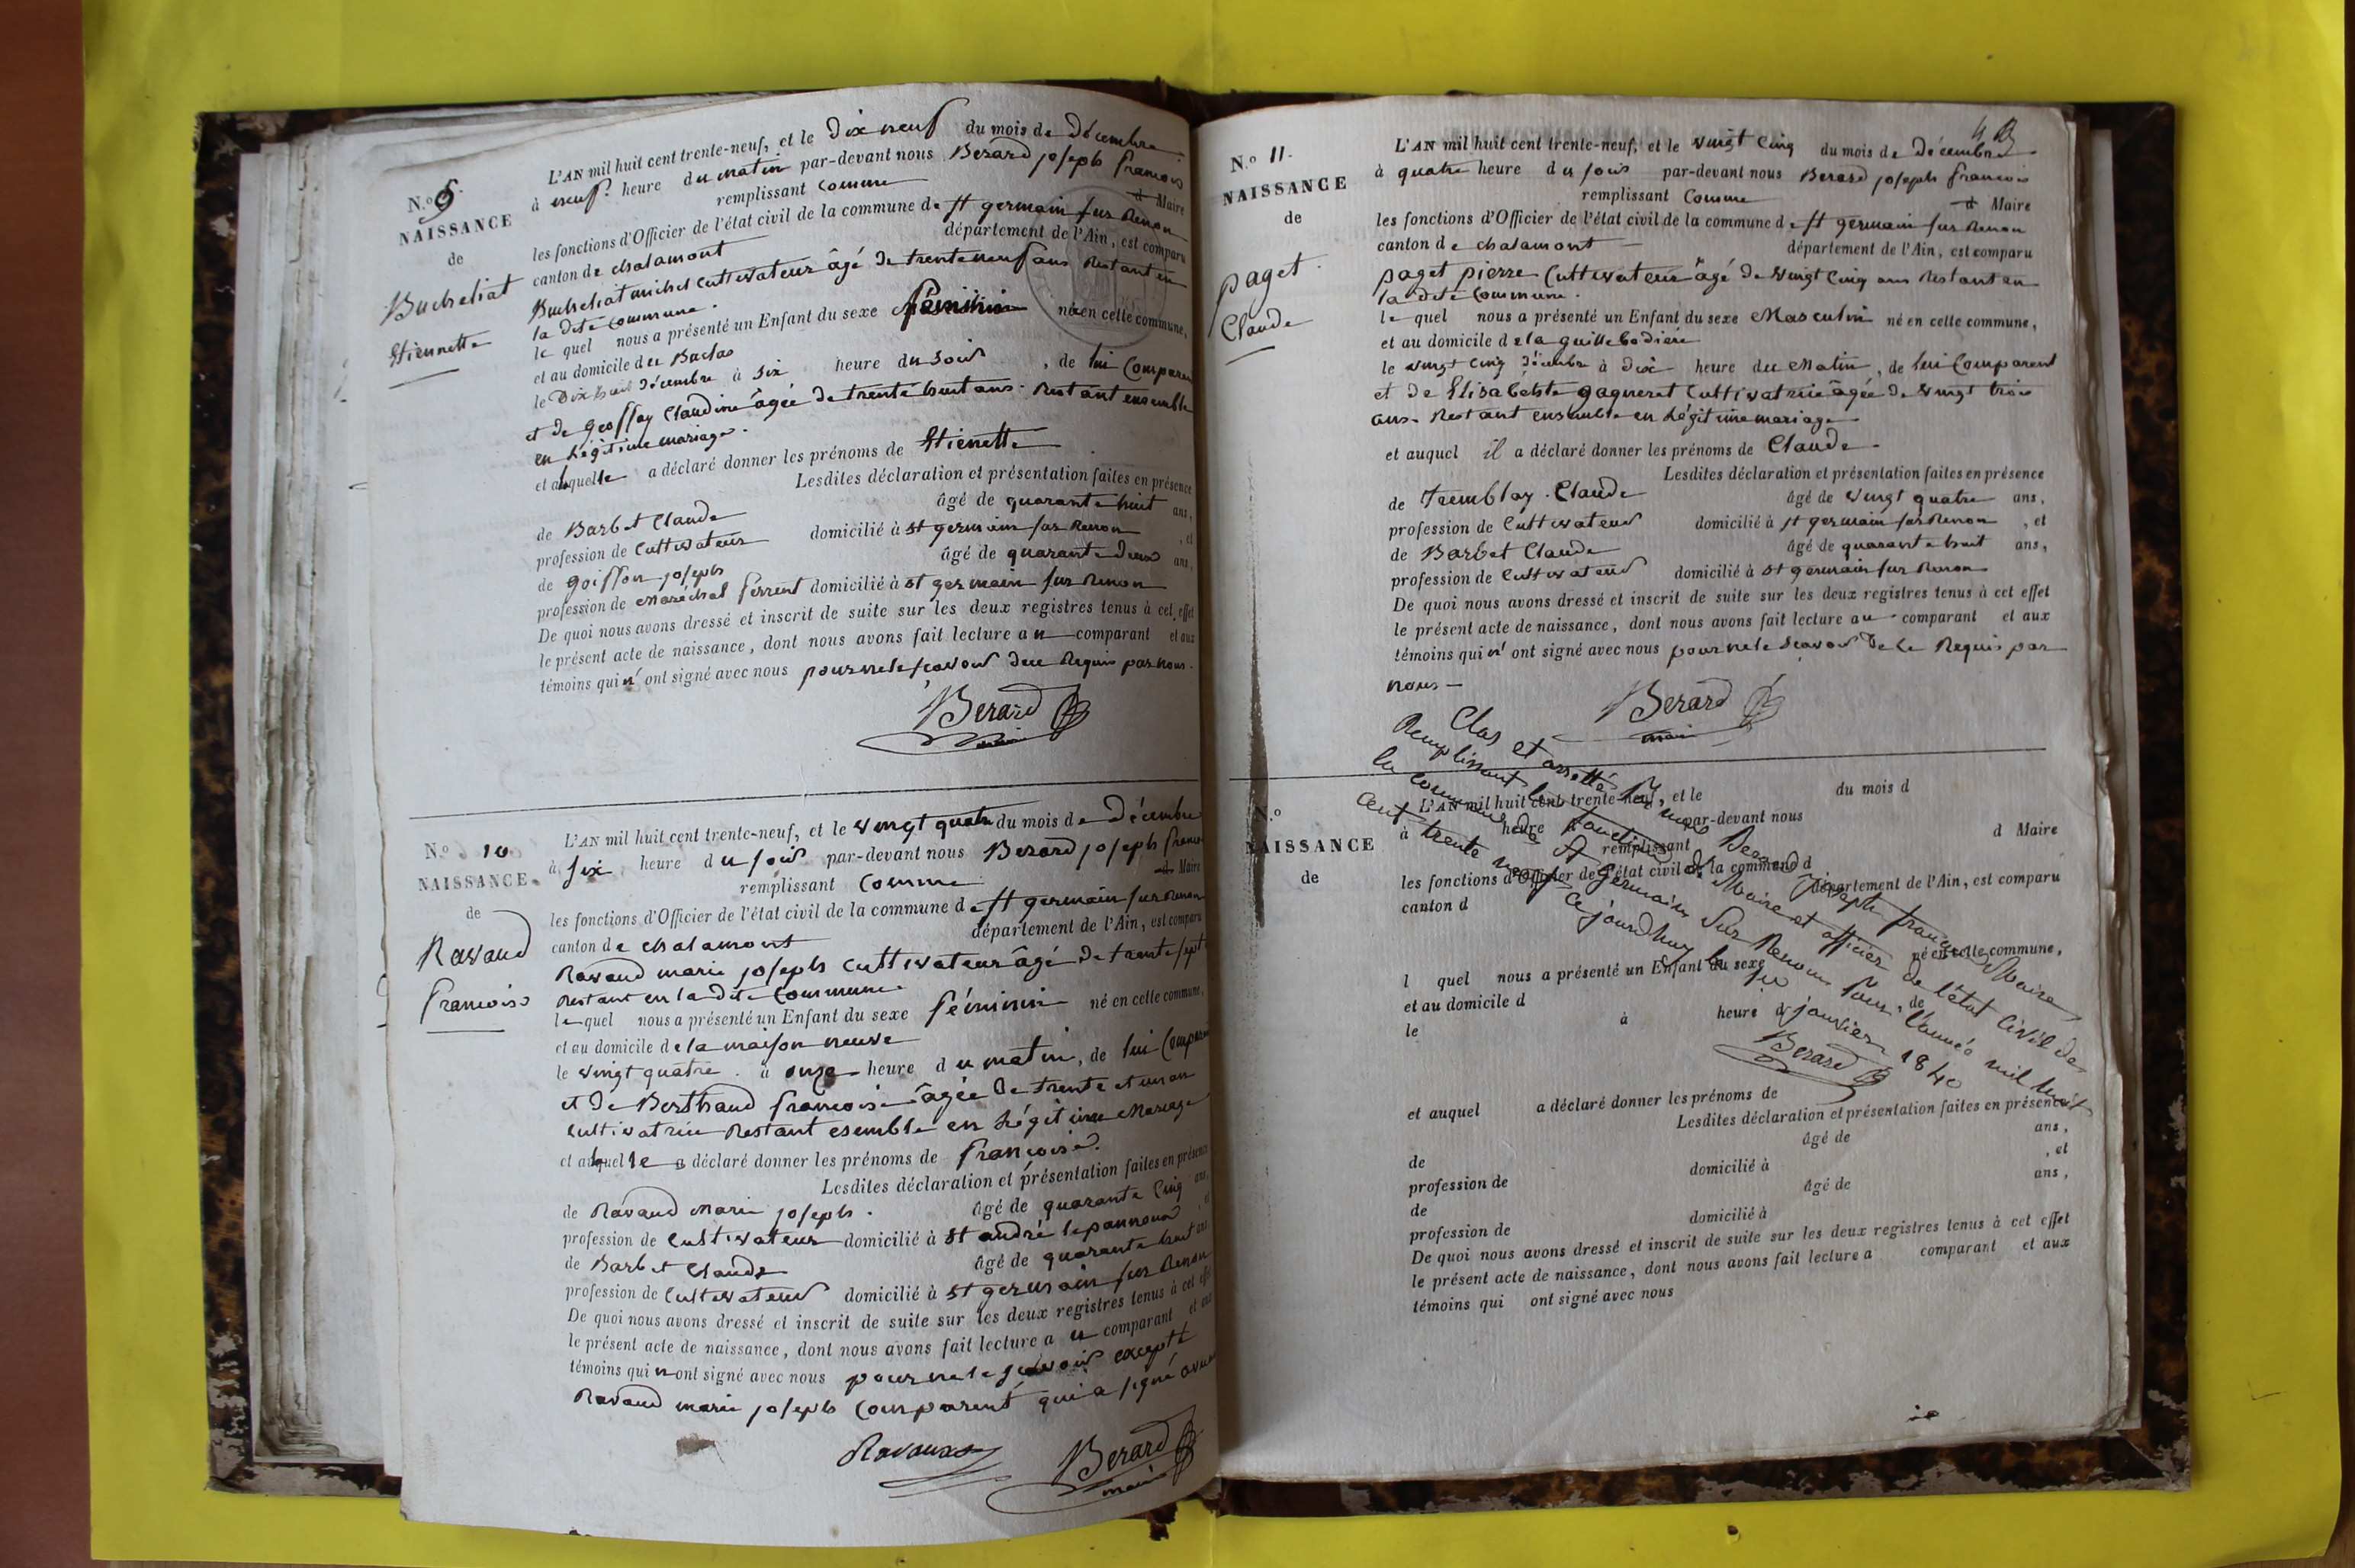 N.o 9.
NAISSANCE
de
Bucheliat
Etiennette
L'AN mil huit cent trente-neuf, et le Dix neuf du mois de Décembre
à neuf heure du matin par-devant nous Berard joseph francois
remplissant Comme d Maire
les fonctions d'Officier de l'état civil de la commune de st germain sur Renon
canton de chalamont département de l'Ain, est comparu
Bucheliat michel Cultivateur âgé de trente neuf ans Restant en
la dite Commune.
le quel nous a présenté un Enfant du sexe féminin né en cette commune,
et au domicile du Baclas
le Dix huit Décembre à Six heure du Soir, de lui Comparent
et de Geoffray Claudine âgée de trente huit ans. Restant ensemble
en Légitime mariage.
et a laquelle a déclaré donner les prénoms de Etienette
Lesdites déclaration et présentation faites en présence
de Barbet Claude âgé de quarante huit ans,
profession de Cultivateur domicilié à st germain sur Renon, et
de goiffon joseph âgé de quarante Deux ans,
profession de Maréchal ferrent domicilié à st germain sur Renon
De quoi nous avons dressé et inscrit de suite sur les deux registres tenus à cet effet
le présent acte de naissance, dont nous avons fait lecture au comparant et aux
témoins qui n' ont signé avec nous pour ne le scavoir Dece Requis par nous.
Berard
maire
N.o 10
NAISSANCE
de
Ravaud
francoise
L'AN mil huit cent trente-neuf, et le vingt quatre du mois de Décembre
à Six heure du soir par-devant nous Berard joseph francois
remplissant Comme d Maire
les fonctions d'Officier de l'état civil de la commune de st germain sur Renon
canton de chalamont département de l'Ain, est comparu
Ravaud marie joseph Cultivateur âgé de trente sept
Restant en la dite Commune
le quel nous a présenté un Enfant du sexe féminin né en cette commune,
et au domicile de la maison neuve
le vingt quatre à onze heure du matin, de lui Comparent
et De Berthaud francoise âgée De trente et un an
Cultivatrice Restant esemble en Légitime Mariage
et a laquelle a déclaré donner les prénoms de francoise.
Lesdites déclaration et présentation faites en présence
de Ravaud Marie joseph. âgé de quarante Cinq ans,
profession de Cultivateur domicilié à st andré le pannoux
de Barbet Claude âgé de quarante huit ans
profession de Cultivateur domicilié à st germain sur Renon
De quoi nous avons dressé et inscrit de suite sur les deux registres tenus à cet effet
le présent acte de naissance, dont nous avons fait lecture au comparant et aux
témoins qui n ont signé avec nous pour ne le scavoir excepté
Ravaud marie joseph Comparent qui a signé avec
Ravaux
Berard
maire
N.o 11.
NAISSANCE
de
paget
Claude
L'AN mil huit cent trente-neuf, et le vingt Cinq du mois de Décembre
à quatre heure du soir par-devant nous Berard joseph francois
remplissant Comme d Maire
les fonctions d'Officier de l'état civil de la commune de st germain sur Renon
canton de chalamont département de l'Ain, est comparu
paget pierre Cultivateur âgé de vingt Cinq ans Restant en
la dite Commune.
le quel nous a présenté un Enfant du sexe Masculin né en cette commune,
et au domicile de la guillebodiere
le vingt Cinq Décembre à Dix heure du Matin, de lui Comparent
et de Elisabethe gagneret Cultivatrice âgée de vingt trois
ans. Restant ensemble en Légitime mariage
et auquel il a déclaré donner les prénoms de Claude.
Lesdites déclaration et présentation faites en présence
de Tremblay. Claude âgé de vingt quatre ans,
profession de Cultivateur domicilié à st germain sur Renon, et
de Barbet Claude âgé de quarante huit ans,
profession de Cultivateur domicilié à st germain sur Renon
De quoi nous avons dressé et inscrit de suite sur les deux registres tenus à cet effet
le présent acte de naissance, dont nous avons fait lecture au comparant et aux
témoins qui n' ont signé avec nous pour ne le Scavoir De Ce Requis par
nous
Berard
maire
Clos et arretté par nous Berard Joseph francois Maire
Remplissant les fonctions de Maire et officier de l'état Civil de
la commune de St germain Sur Renom Pour l'année mil huit
Cent trente neuf Ce jourdhuy le janvier 1840
Berard
N.o
NAISSANCE
de
L'AN mil huit cent trente-neuf, et le du mois d
à heure par-devant nous
remplissant d Maire
les fonctions d'Officier de l'état civil de la commune d
canton d département de l'Ain, est comparu
l quel nous a présenté un Enfant du sexe né en cette commune,
et au domicile d
le à heure d, de
et auquel a déclaré donner les prénoms de
Lesdites déclaration et présentation faites en présence
de âgé de ans,
profession de domicilié à, et
de âgé de ans,
profession de domicilié à
De quoi nous avons dressé et inscrit de suite sur les deux registres tenus à cet effet
le présent acte de naissance, dont nous avons fait lecture a comparant et aux
témoins qui ont signé avec nous